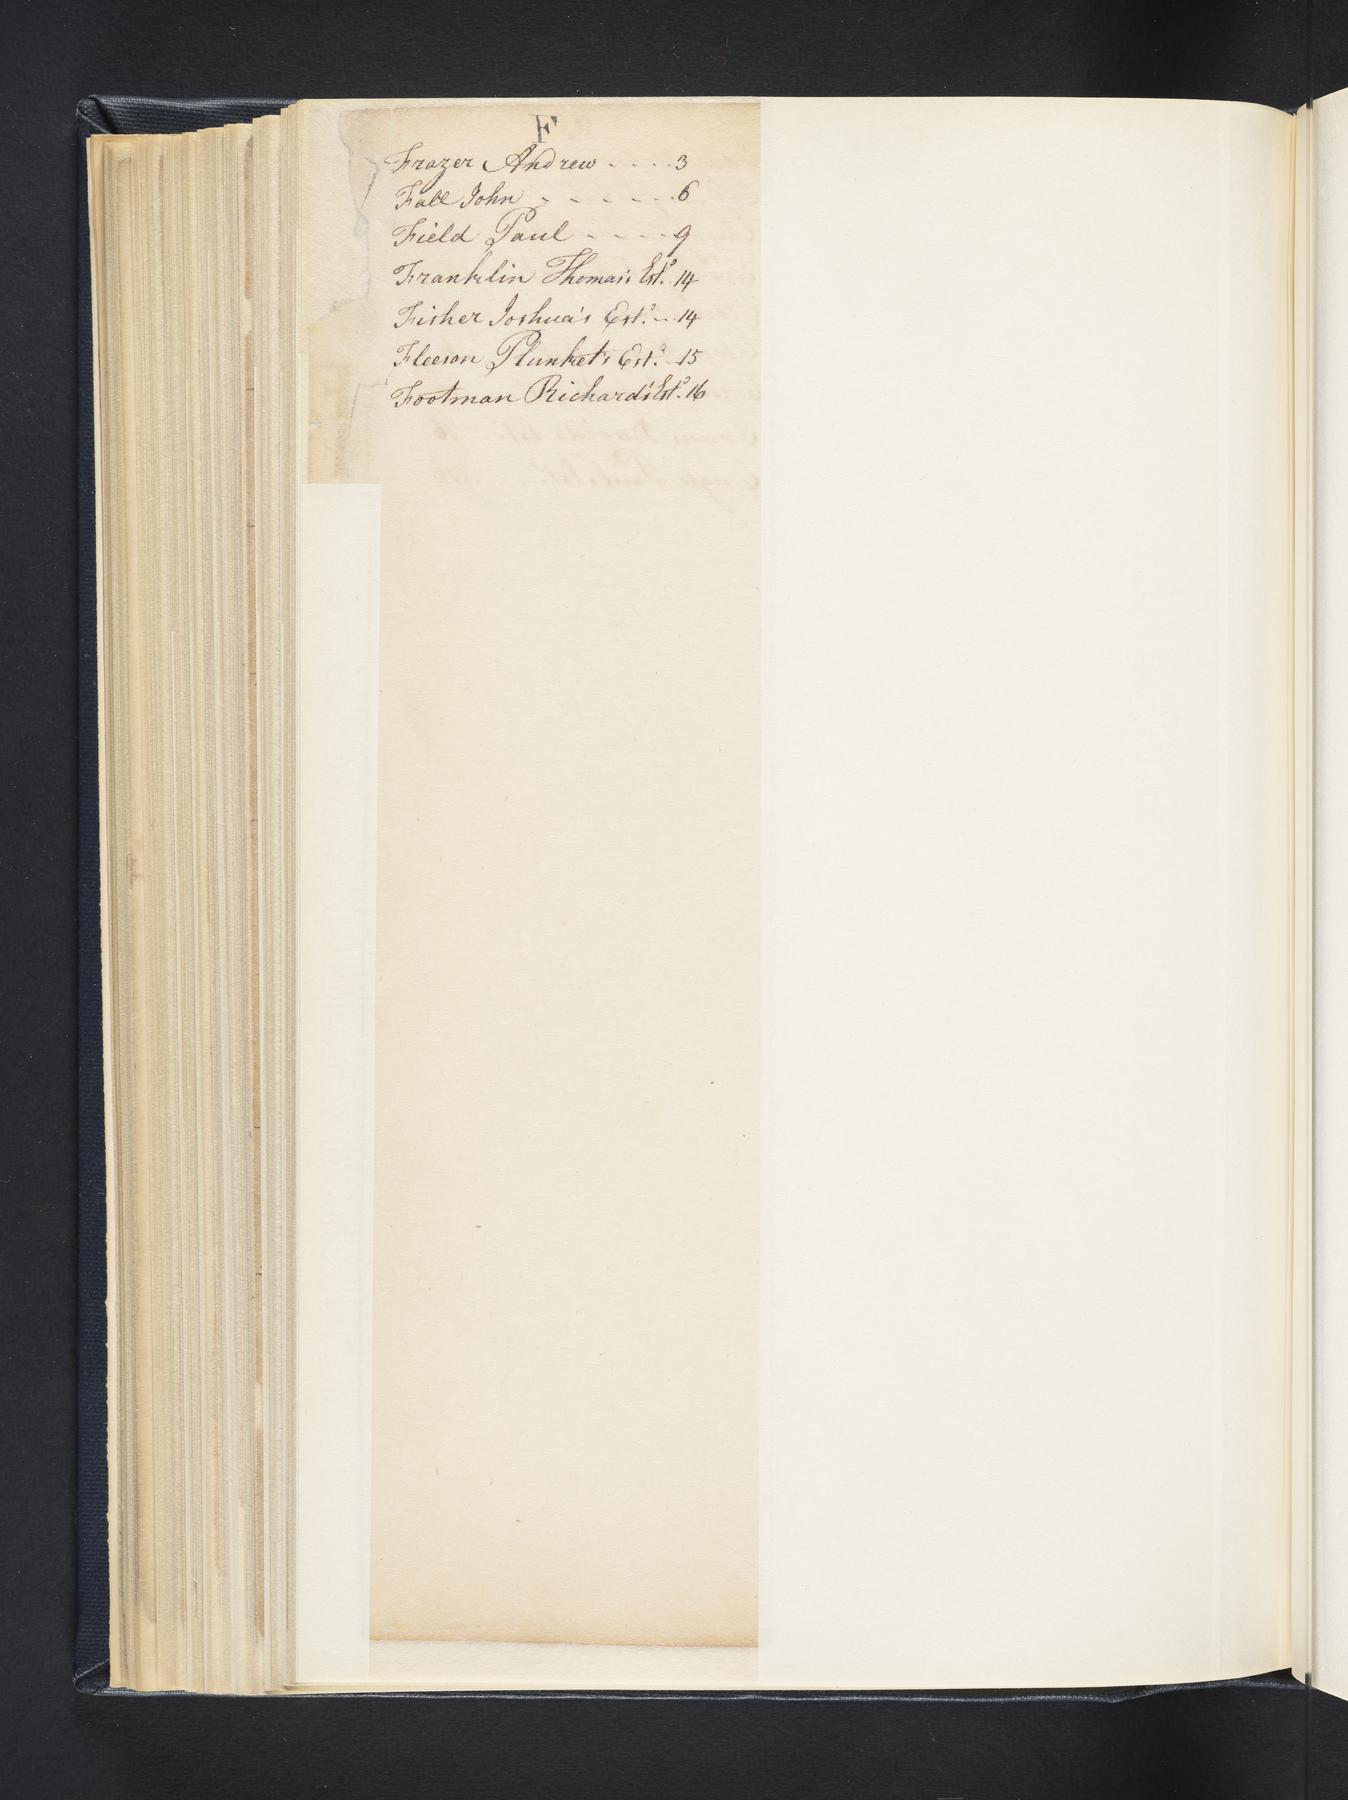 F
Frazer Andrew - - - - 3
Fall John - - - - - - 6
Field Paul - - - - 9
Franklin Thomas's Est.ᵉ 14
Fisher Joshua's Est.ᵉ - - 14
Fleeson Plunket's Est.ᵉ - 15
Footman Richard's Est.ᵉ 16